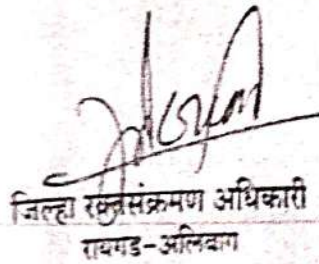 जिल्हा रक्तसंक्रमण अधिकारी
रायगड-अलिबाग